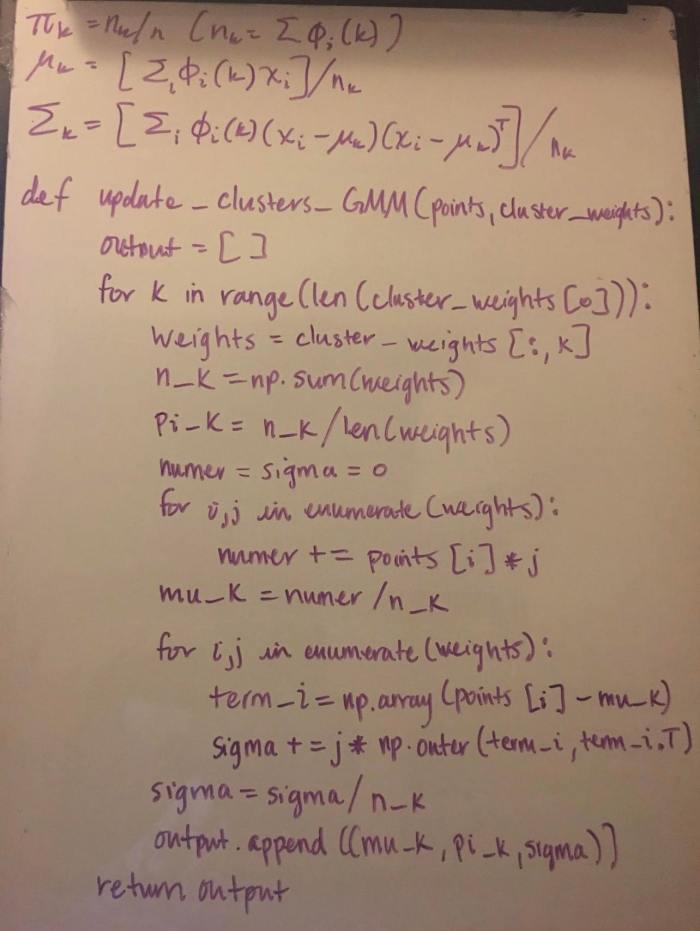 πk = nk/n (nk = Σ ϕi(k))
μk = [Σi ϕi(k) xi]/nk
Σk = [Σi ϕi(k)(xi - μk)(xi - μk)ᵀ]/nk
def update_clusters_GMM(points, cluster_weights):
output = []
for k in range(len(cluster_weights[0])):
weights = cluster_weights[:, k]
n_k = np.sum(weights)
pi_k = n_k/len(weights)
numer = sigma = 0
for i,j in enumerate(weights):
numer += points[i]*j
mu_k = numer/n_k
for i,j in enumerate(weights):
term_i = np.array(points[i] - mu_k)
sigma += j* np.outer(term_i, term_i.T)
sigma = sigma/n_k
output.append((mu_k, pi_k, sigma)]
return output